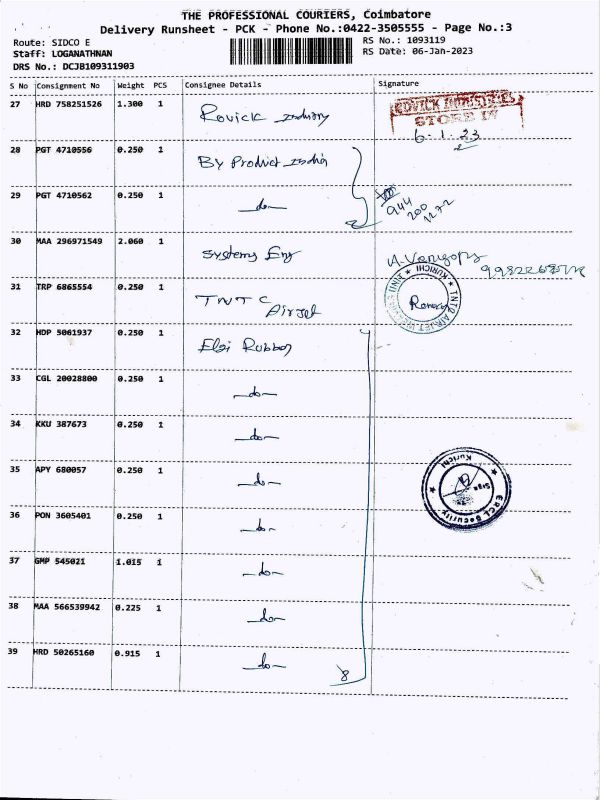 THE PROFESSIONAL COURIERS, Coimbatore
Delivery Runsheet - PCK - Phone No.:0422-3505555 - Page No.:3
Route: SIDCO E
RS No.: 1093119
Staff: LOGANATHNAN
RS Date: 06-Jan-2023
DRS No.: DCJB109311903
S No Consignment No Weight PCS Consignee Details Signature
27 HRD 758251526 1.300 1 Rovick Industry
ROVICK INDUSTRIES
STORE IN
6.1.23
28 PGT 4710556 0.250 1 By Product India
29 PGT 4710562 0.250 1 -do-
944
200
1272
30 MAA 296971549 2.060 1 Systems Eng
31 TRP 6865554 0.250 1 TNTC
Airjet
KURICHI
32 HDP 5061937 0.250 1 Elgi Rubber
33 CGL 20028800 0.250 1 -do-
34 KKU 387673 0.250 1 -do-
35 APY 680057 0.250 1 -do-
Kurichi
Sign
ERCL Security
36 PON 3605401 0.250 1 -do-
37 GMP 545021 1.015 1 -do-
38 MAA 566539942 0.225 1 -do-
39 HRD 50265160 0.915 1 -do-
8